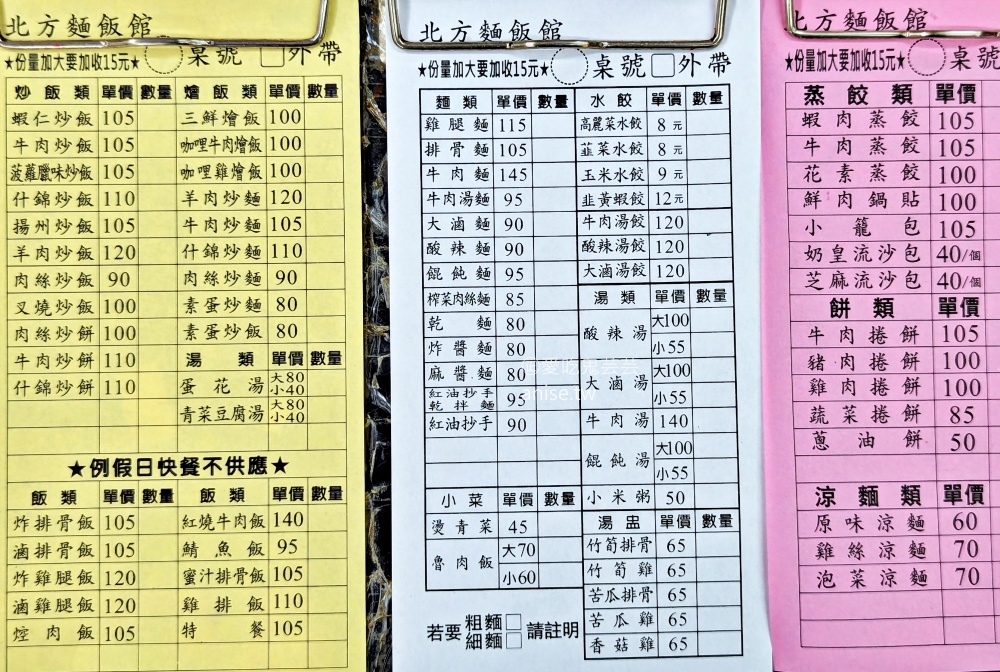 北方麵飯館
★份量加大要加收15元★ 桌號 外帶
炒飯類 單價 數量 燴飯類 單價 數量
蝦仁炒飯 105 三鮮燴飯 100
牛肉炒飯 105 咖哩牛肉燴飯 100
菠蘿臘味炒飯 105 咖哩雞燴飯 100
什錦炒飯 110 羊肉炒麵 120
揚州炒飯 105 牛肉炒麵 105
羊肉炒飯 120 什錦炒麵 110
肉絲炒飯 90 肉絲炒麵 90
叉燒炒飯 100 素蛋炒麵 80
肉絲炒餅 100 素蛋炒飯 80
牛肉炒餅 110 湯類 單價 數量
什錦炒餅 110 蛋花湯 大80 小40
青菜豆腐湯 大80 小40
★例假日快餐不供應★
飯類 單價 數量 飯類 單價 數量
炸排骨飯 105 紅燒牛肉飯 140
滷排骨飯 105 鯖魚飯 95
炸雞腿飯 120 蜜汁排骨飯 105
滷雞腿飯 120 雞排飯 110
焢肉飯 105 特餐 105
北方麵飯館
★份量加大要加收15元★ 桌號 外帶
麵類 單價 數量 水餃 單價 數量
雞腿麵 115 高麗菜水餃 8元
排骨麵 105 韮菜水餃 8元
牛肉麵 145 玉米水餃 9元
牛肉湯麵 95 韭黃蝦餃 12元
大滷麵 90 牛肉湯餃 120
酸辣麵 90 酸辣湯餃 120
餛飩麵 95 大滷湯餃 120
榨菜肉絲麵 85 湯類 單價 數量
乾麵 80 酸辣湯 大100 小55
炸醬麵 80
麻醬麵 80 大滷湯 大100 小55
紅油抄手乾拌麵 95
紅油抄手 90 牛肉湯 140
餛飩湯 大100 小55
小菜 單價 數量 小米粥 50
燙青菜 45 湯盅 單價 數量
魯肉飯 大70 小60 竹筍排骨 65
竹筍雞 65
苦瓜排骨 65
苦瓜雞 65
香菇雞 65
若要 粗麵 細麵 請註明
愛吃鬼芸芸
anise.tw
北方麵飯館
★份量加大要加收15元★ 桌號
蒸餃類 單價
蝦肉蒸餃 105
牛肉蒸餃 105
花素蒸餃 100
鮮肉鍋貼 100
小籠包 105
奶皇流沙包 40/個
芝麻流沙包 40/個
餅類 單價
牛肉捲餅 105
豬肉捲餅 100
雞肉捲餅 100
蔬菜捲餅 85
蔥油餅 50
涼麵類 單價
原味涼麵 60
雞絲涼麵 70
泡菜涼麵 70